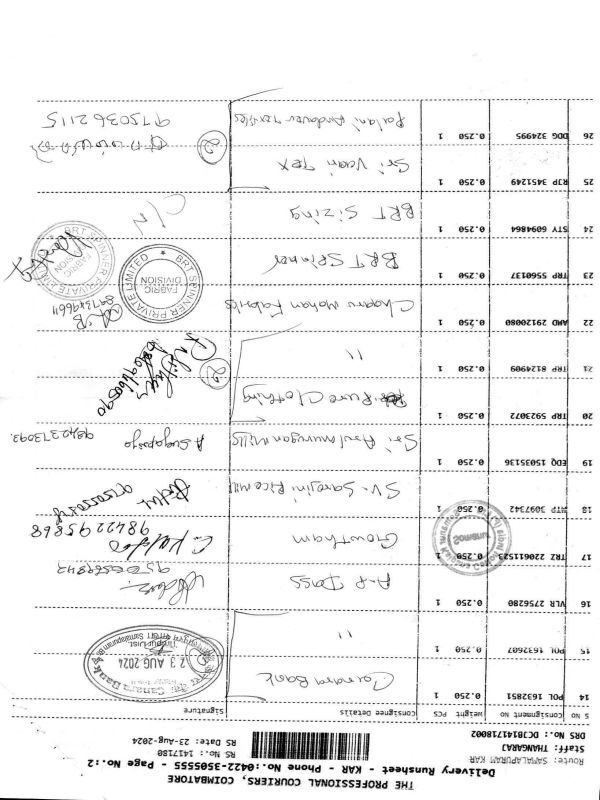 THE PROFESSIONAL COURIERS, COIMBATORE
Delivery Runsheet - KAR - Phone No.:0422-3505555 - Page No.:2
Route: SAMALAPURAM KAR
Staff: THANGARAJ
DRS No.: DCJB141718002
RS No.: 1417180
RS Date: 23-Aug-2024
S NO Consignment NO Weight PCS Consignee Details Signature
14 POL 1632851 0.250 1 Canara Bank
23 AUG 2024
15 POL 1632607 0.250 1 11
16 VLR 2756280 0.250 1 A.P Dass
17 TRZ 220611523 0.250 1 Gowtham 9842295868
18 MTP 3097342 0.250 1 SV. Sarojini Rice Mill
19 EDQ 15035136 0.250 1 Sri Arulmurugan Mills 9842373093
20 TRP 5923072 0.250 1 Pure Clothing
21 TRP 8124909 0.250 1 11
22
22 AMD 29120080 0.250 1 Mohan Fabrics 8973496611
23 TRP 5560137 0.250 1 BRT Spinner
BRT SPINNER PRIVATE LIMITED
FABRIC DIVISION
BRT SPINNER PRIVATE LIMITED
FABRIC DIVISION
24 STY 6094864 0.250 1 BRT Sizing C/N
25 RJP 3451249 0.250 1 Sri Vaari Tex
26 DDG 324995 0.250 1 Palani Andavar Textiles 9750362115
2